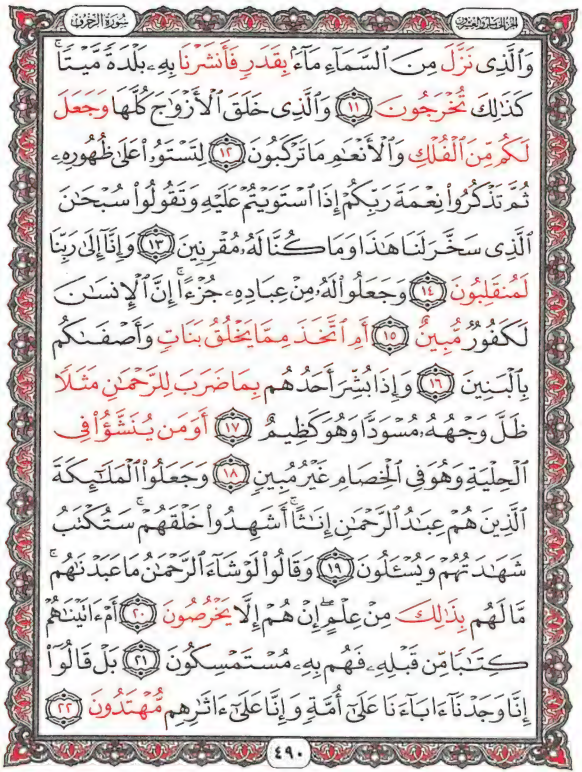 سُورَةُ الزُّخْرُفِ الجُزْءُ الخَامِسُ وَالعِشْرُونَ
وَٱلَّذِى نَزَّلَ مِنَ ٱلسَّمَآءِ مَآءَۢ بِقَدَرٍ فَأَنشَرْنَا بِهِۦ بَلْدَةً مَّيْتًا ۚ
كَذَٰلِكَ تُخْرَجُونَ ١١ وَٱلَّذِى خَلَقَ ٱلْأَزْوَٰجَ كُلَّهَا وَجَعَلَ
لَكُم مِّنَ ٱلْفُلْكِ وَٱلْأَنْعَٰمِ مَا تَرْكَبُونَ ١٢ لِتَسْتَوُۥا۟ عَلَىٰ ظُهُورِهِۦ
ثُمَّ تَذْكُرُوا۟ نِعْمَةَ رَبِّكُمْ إِذَا ٱسْتَوَيْتُمْ عَلَيْهِ وَتَقُولُوا۟ سُبْحَٰنَ
ٱلَّذِى سَخَّرَ لَنَا هَٰذَا وَمَا كُنَّا لَهُۥ مُقْرِنِينَ ١٣ وَإِنَّآ إِلَىٰ رَبِّنَا
لَمُنقَلِبُونَ ١٤ وَجَعَلُوا۟ لَهُۥ مِنْ عِبَادِهِۦ جُزْءًا ۚ إِنَّ ٱلْإِنسَٰنَ
لَكَفُورٌ مُّبِينٌ ١٥ أَمِ ٱتَّخَذَ مِمَّا يَخْلُقُ بَنَاتٍ وَأَصْفَىٰكُم
بِٱلْبَنِينَ ١٦ وَإِذَا بُشِّرَ أَحَدُهُم بِمَا ضَرَبَ لِلرَّحْمَٰنِ مَثَلًا
ظَلَّ وَجْهُهُۥ مُسْوَدًّا وَهُوَ كَظِيمٌ ١٧ أَوَمَن يُنَشَّؤُا۟ فِى
ٱلْحِلْيَةِ وَهُوَ فِى ٱلْخِصَامِ غَيْرُ مُبِينٍ ١٨ وَجَعَلُوا۟ ٱلْمَلَٰٓئِكَةَ
ٱلَّذِينَ هُمْ عِبَٰدُ ٱلرَّحْمَٰنِ إِنَٰثًا ۚ أَشَهِدُوا۟ خَلْقَهُمْ ۚ سَتُكْتَبُ
شَهَٰدَتُهُمْ وَيُسْـَٔلُونَ ١٩ وَقَالُوا۟ لَوْ شَآءَ ٱلرَّحْمَٰنُ مَا عَبَدْنَٰهُم ۗ
مَّا لَهُم بِذَٰلِكَ مِنْ عِلْمٍ ۖ إِنْ هُمْ إِلَّا يَخْرُصُونَ ٢٠ أَمْ ءَاتَيْنَٰهُمْ
كِتَٰبًا مِّن قَبْلِهِۦ فَهُم بِهِۦ مُسْتَمْسِكُونَ ٢١ بَلْ قَالُوٓا۟
إِنَّا وَجَدْنَآ ءَابَآءَنَا عَلَىٰٓ أُمَّةٍ وَإِنَّا عَلَىٰٓ ءَاثَٰرِهِم مُّهْتَدُونَ ٢٢
٤٩٠